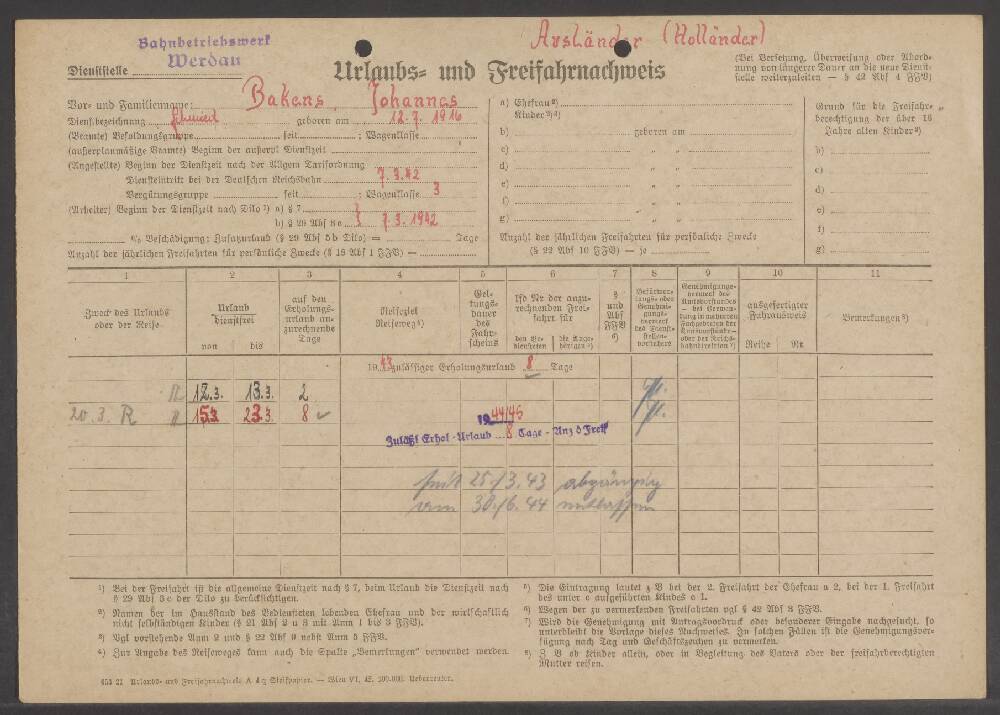 Bahnbetriebswerk
Werdau
Dienststelle
Ausländer (Holländer)
Urlaubs- und Freifahrnachweis
(Bei Versetzung, Überweisung oder Abord-
nung von längerer Dauer an die neue Dienst-
stelle weiterzuleiten — § 42 Abf 4 FFB)
Vor- und Familienname: Bakens, Johannes
Dienstbezeichnung Schmied geboren am 12.7.1916
(Beamte) Besoldungsgruppe seit ; Wagenklasse
(außerplanmäßige Beamte) Beginn der außerpl Dienstzeit
(Angestellte) Beginn der Dienstzeit nach der Allgem Tarifordnung
Diensteintritt bei der Deutschen Reichsbahn 7.3.42
Vergütungsgruppe seit ; Wagenklasse 3
(Arbeiter) Beginn der Dienstzeit nach Dilo ¹) a) § 7
b) § 29 Abs 8 c } 7.3.1942
% Beschädigung: Zusatzurlaub (§ 29 Abs 5 b Dilo) = Tage
Anzahl der jährlichen Freifahrten für persönliche Zwecke (§ 16 Abs 1 FFB) —
a) Ehefrau ²)
Kinder ²)³)
b) geboren am
c) " "
d) " "
e) " "
f) " "
g) " "
Anzahl der jährlichen Freifahrten für persönliche Zwecke
(§ 22 Abs 10 FFB) — je
Grund für die Freifahr-
berechtigung der über 16
Jahre alten Kinder ³)
b)
c)
d)
e)
f)
g)
1 2 3 4 5 6 7 8 9 10 11
Zweck des Urlaubs
oder der Reise
Urlaub
Dienstfrei
von bis
auf den
Erholungs-
urlaub an-
zurechnende
Tage
Reiseziel
Reiseweg ⁴)
Gel-
tungs-
dauer
des
Fahr-
scheins
lfd Nr der anzu-
rechnenden Frei-
fahrt für
den Be-
diensteten die Ange-
hörigen ⁵)
§
und
Abs
FFB
⁶)
Befürwor-
tungs- oder
Genehmi-
gungs-
vermerk
des Dienst-
stellen-
vorstehers
Genehmigungs-
vermerk des
Amtsvorstandes
oder der Reichs-
bahndirektion ⁷)
ausgefertigter
Fahrausweis
Reihe Nr
Bemerkungen ⁸)
19 43 zulässiger Erholungsurlaub 8 Tage
12.3. 13.3. 2
20.3. R 15.3. 23.3. 8
19 44/45
Zuläss Erhol-Urlaub 8 Tage - Anz d Freif
seit 25/3.43 abgängig
vom 30/6.44 entlassen
¹) Bei der Freifahrt ist die allgemeine Dienstzeit nach § 7, beim Urlaub die Dienstzeit nach
§ 29 Abs 8 c der Dilo zu berücksichtigen.
²) Namen der im Hausstand des Bediensteten lebenden Ehefrau und der wirtschaftlich
nicht selbständigen Kinder (§ 21 Abs 2 u 3 mit Anm 1 bis 3 FFB).
³) Vgl vorstehende Anm 2 und § 22 Abs 9 nebst Anm 5 FFB.
⁴) Zur Angabe des Reiseweges kann auch die Spalte „Bemerkungen" verwendet werden.
⁵) Die Eintragung lautet z B bei der 2. Freifahrt der Ehefrau a 2, bei der 1. Freifahrt
des unter c aufgeführten Kindes c 1.
⁶) Wegen der zu vermerkenden Freifahrten vgl § 42 Abs 3 FFB.
⁷) Wird die Genehmigung mit Antragsvordruck oder besonderer Eingabe nachgesucht, so
unterbleibt die Vorlage dieses Nachweises. In solchen Fällen ist die Genehmigungsver-
fügung nach Tag und Geschäftszeichen zu vermerken.
⁸) Z B ob Kinder allein, oder in Begleitung des Vaters oder der freifahrberechtigten
Mutter reisen.
453 21 Urlaubs- und Freifahrnachweis A 4q Steifpapier. — Wien VI, 42. 200.000. Ueberreuter.